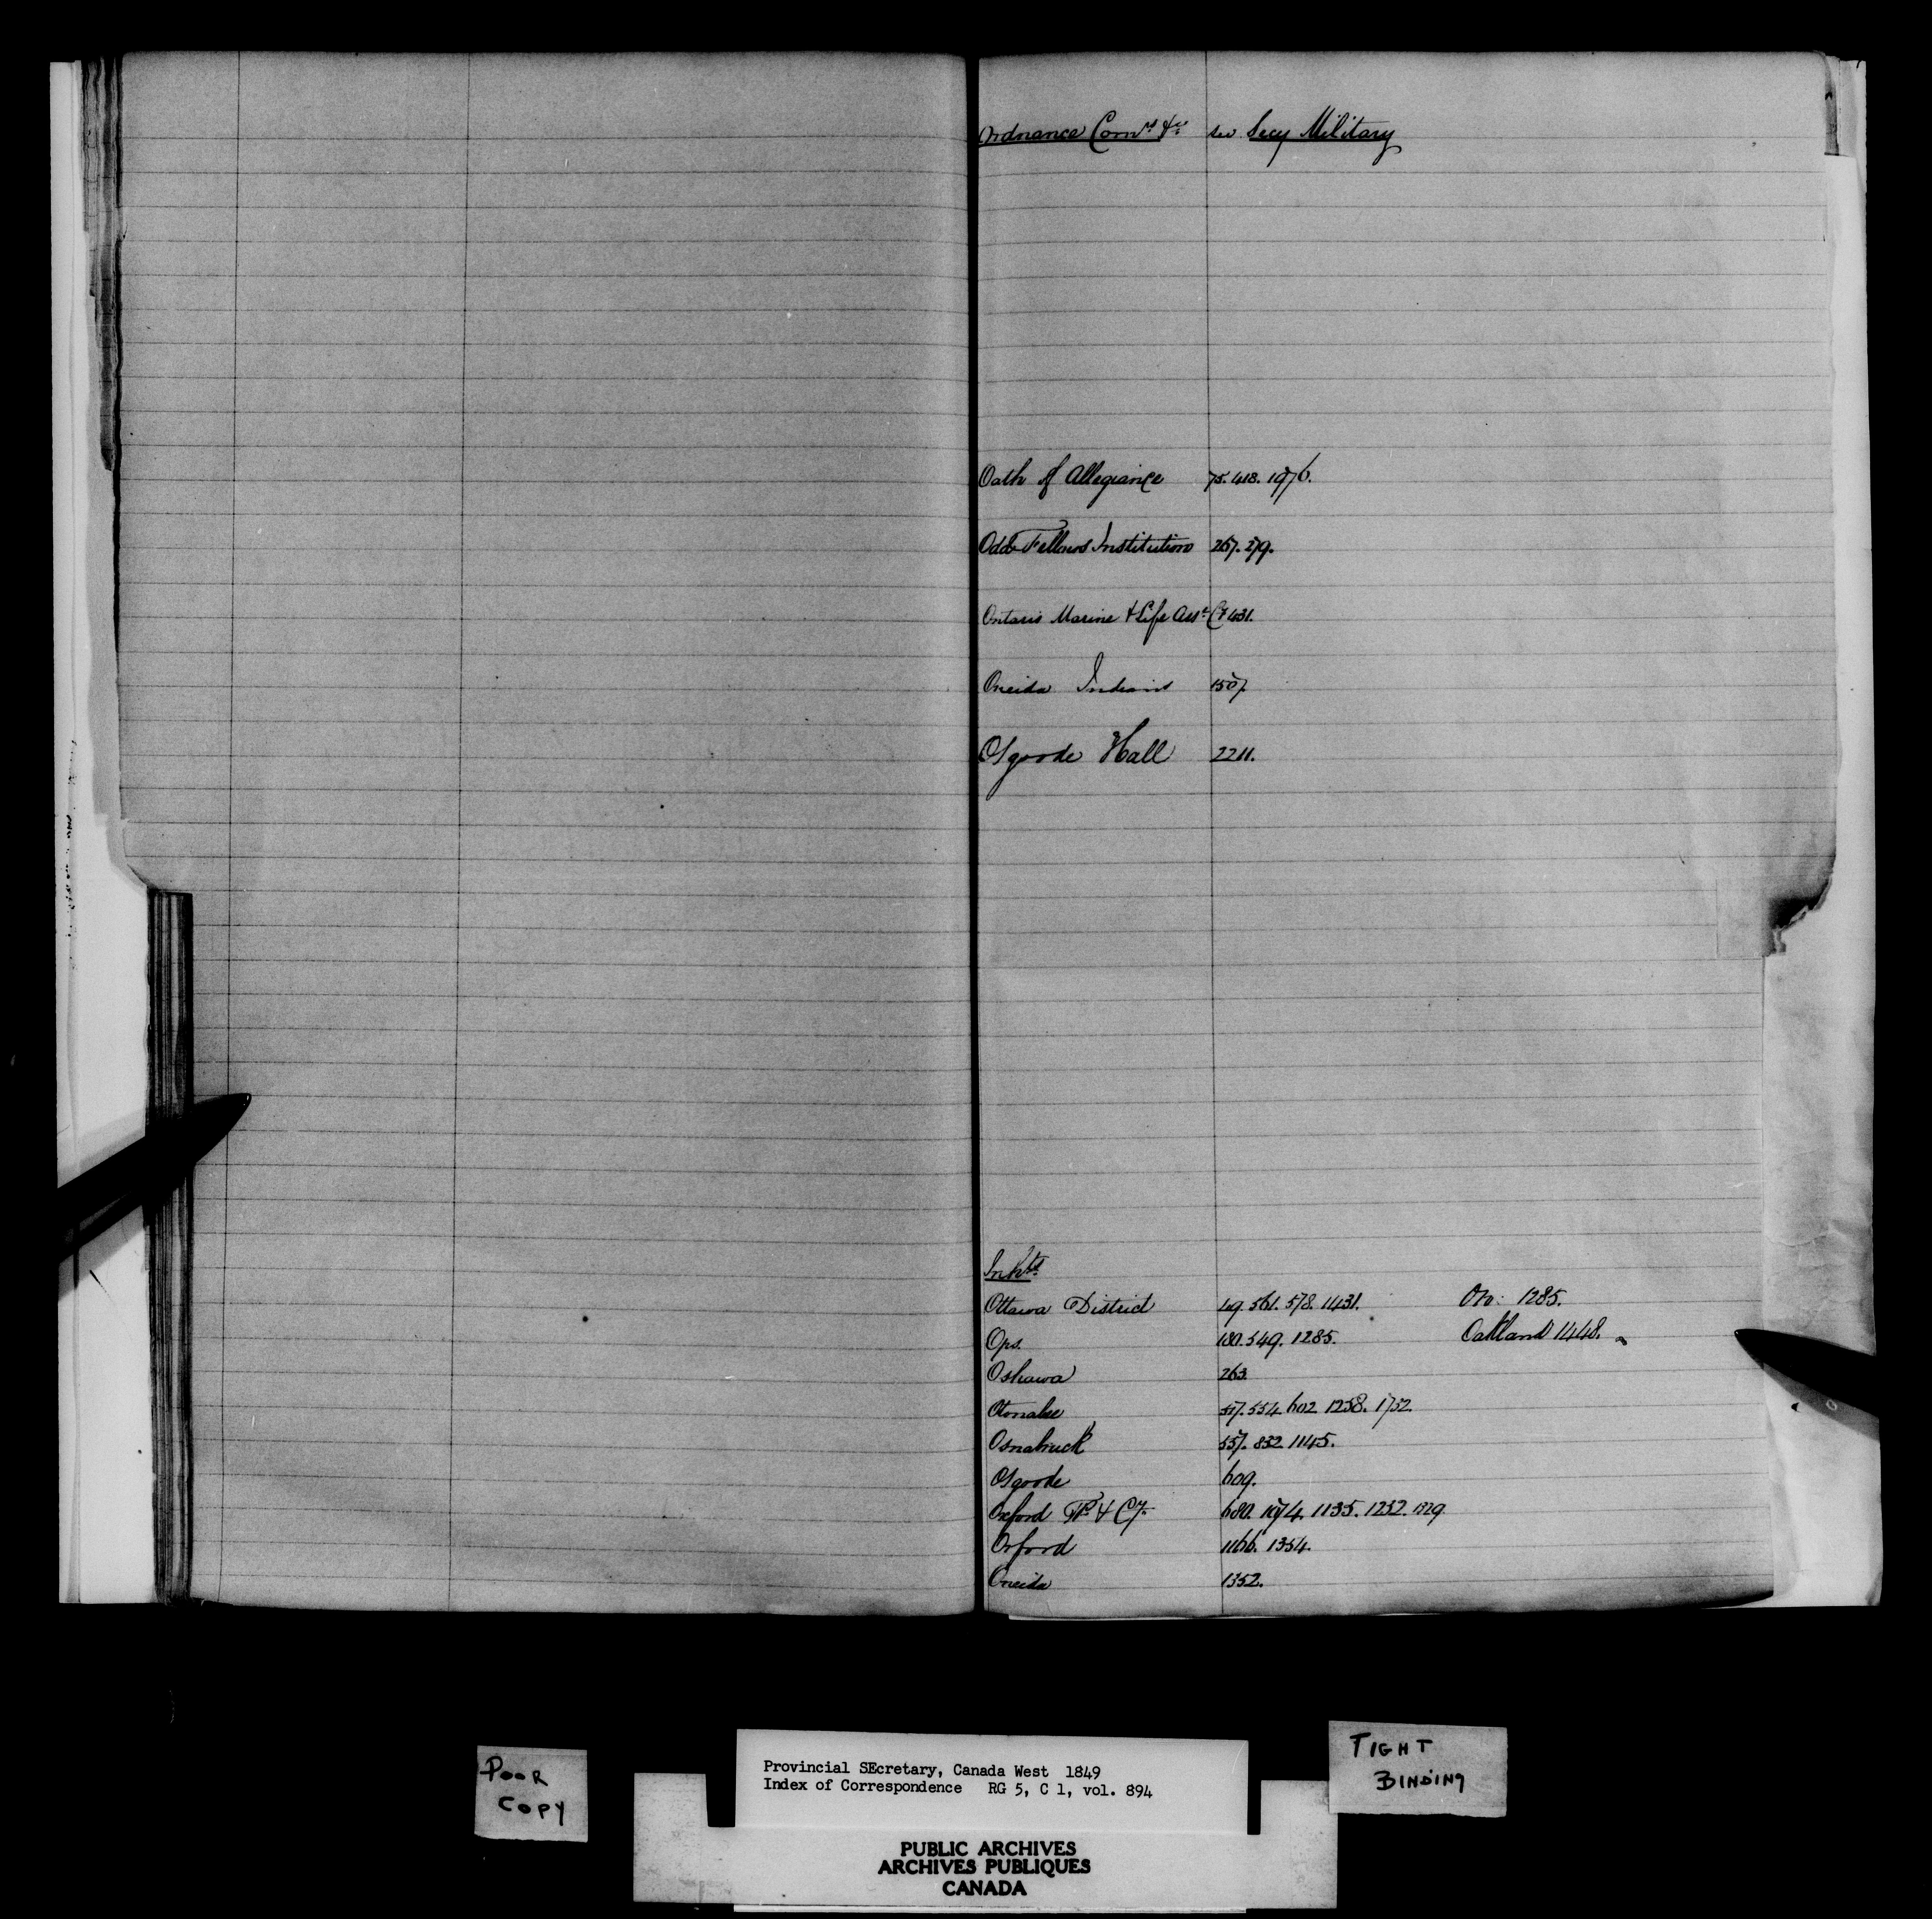 Ordnance Comrs &c. see Secy Military
Oath of Allegiance 75. 418. 1976.
Odd Fellows Institution 267. 279.
Ontario Marine & Life Asse Co 431.
Oneida Indians 1507
Osgoode Hall 2211.
Inhts.
Ottawa District 49. 561. 578. 1431. Oro: 1285.
Ops. 180. 549. 1285. Oakland 1448.
Oshawa 263.
Otonabee 517. 554. 602. 1258. 1732
Osnabruck 557. 832. 1145.
Osgoode 609.
Oxford Tp. & Cy. 680. 1074. 1135. 1232. 1329
Orford 1166. 1354.
Oneida 1352.
POOR
COPY
Provincial SEcretary, Canada West 1849
Index of Correspondence RG 5, C 1, vol. 894
PUBLIC ARCHIVES
ARCHIVES PUBLIQUES
CANADA
TIGHT
BINDING